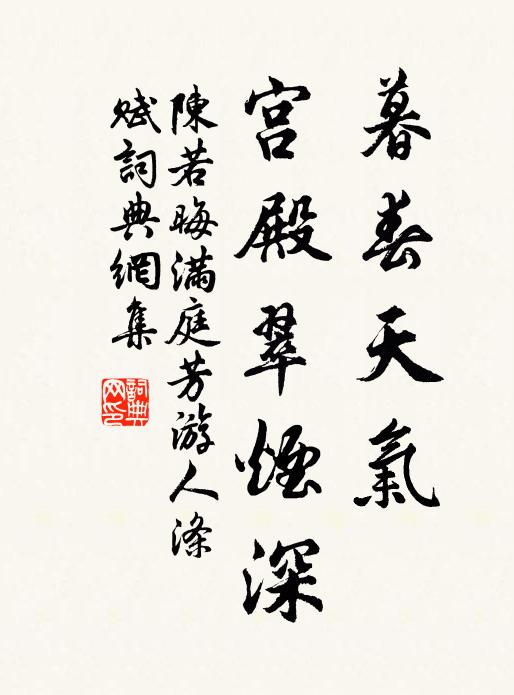 暮春天氣
宮殿翠煙深
陳若晦滿庭芳游人滌
賦詞典網集
詞典
网印